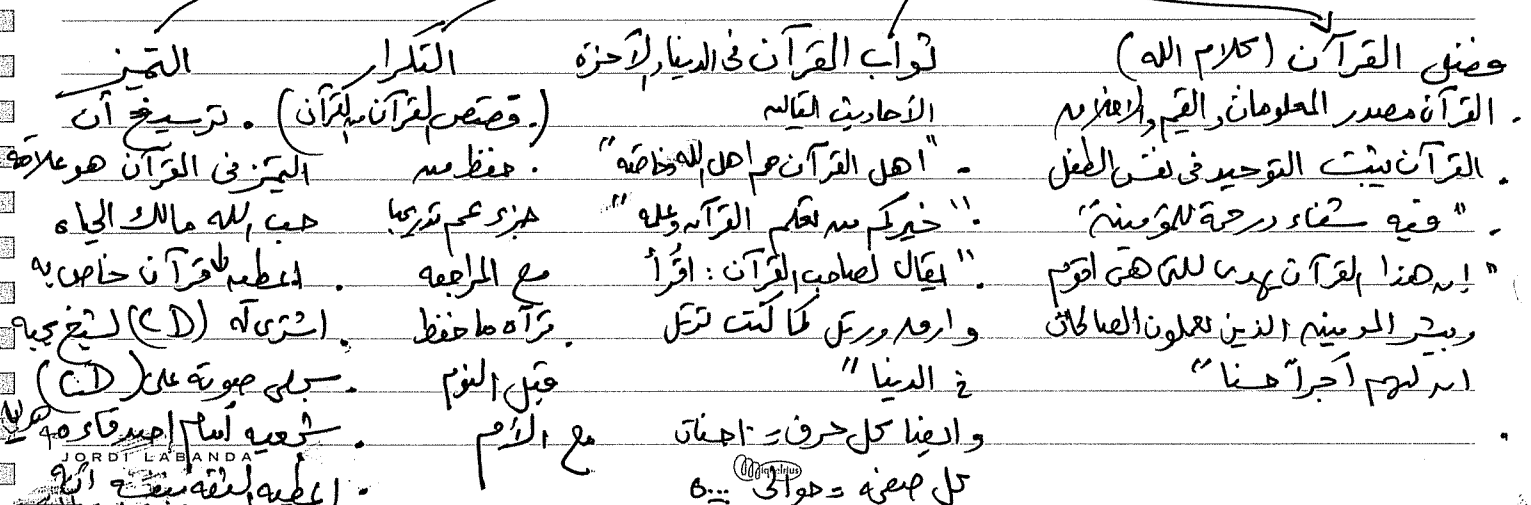 فضل القرآن (كلام الله)
. القرآن مصدر المعلومات والقيم والأخلاق
. القرآن يثبت التوحيد في نفس الطفل
. "فيه شفاء ورحمة للمؤمنين"
" إن هذا القرآن يهدي للتي هي أقوم
ويبشر المؤمنين الذين يعملون الصالحات
ان لهم أجراً حسنا"
ثواب القرآن في الدنيا والآخرة
الأحاديث التاليه
. "اهل القرآن هم اهل الله وخاصته"
. "خيركم من تعلم القرآن وعلمه"
. "يقال لصاحب القرآن : اقرأ
وارق ورتل كما كنت ترتل
في الدنيا"
وايضا كل حرف = ١٠ حسنات
كل صفحه = حوالي
التكرار
(. قصص القرآن من القرآن)
. حفظ من
جزء عم تدريجيا
مع المراجعه
. قرآه ما حفظ
قبل النوم
مع الأم
التميز
. ترسيخ أن
التميز في القرآن هو علامة
حب الله مالك الحياه
. اعطيه قرآن خاص به
. اشتري له (CD) لشيخ يحبه
. سجلي صوته على (CD)
. شجعيه أمام اصدقاءه
. اعطيه الثقه بنفسه أنه
JORDI LABANDA
Miquelrius